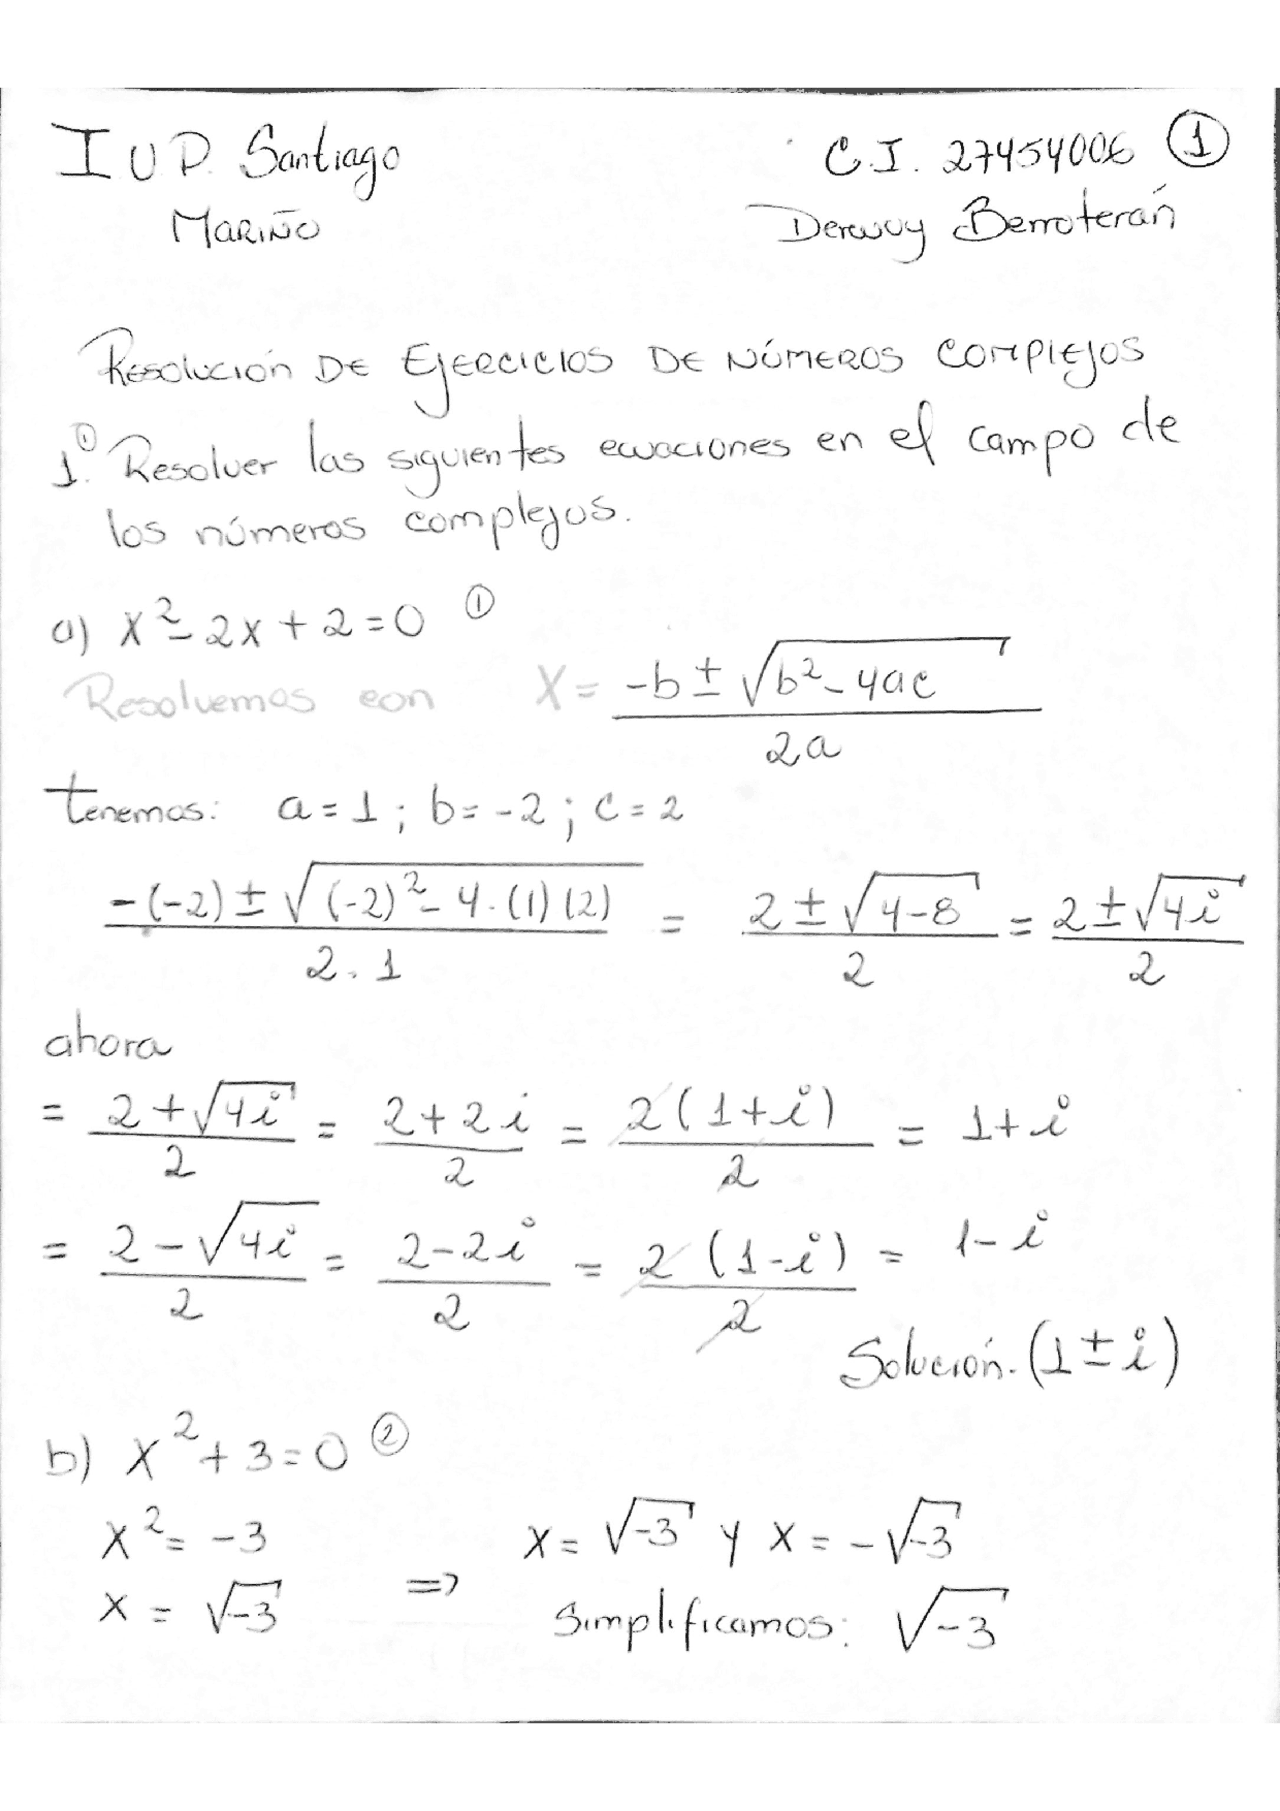 I U P. Santiago C.I. 27454006 ①
MARIÑO Derwuy Berroterán
Resolución DE EJERCICIOS DE NÚMEROS COMPLEJOS
1.① Resolver las siguientes ecuaciones en el campo de
los números complejos.
a) x² - 2x + 2 = 0 ①
Resolvemos con X = (-b ± √(b² - 4ac)) / 2a
tenemos: a = 1 ; b = -2 ; c = 2
(-(-2) ± √((-2)² - 4·(1)(2))) / 2·1 = (2 ± √(4-8)) / 2 = (2 ± √4i) / 2
ahora
= (2 + √4i) / 2 = (2 + 2i) / 2 = 2(1+i) / 2 = 1 + i
= (2 - √4i) / 2 = (2 - 2i) / 2 = 2(1-i) / 2 = 1 - i
Solución. (1 ± i)
b) x² + 3 = 0 ②
x² = -3 x = √-3 y x = -√-3
x = √-3 => Simplificamos: √-3